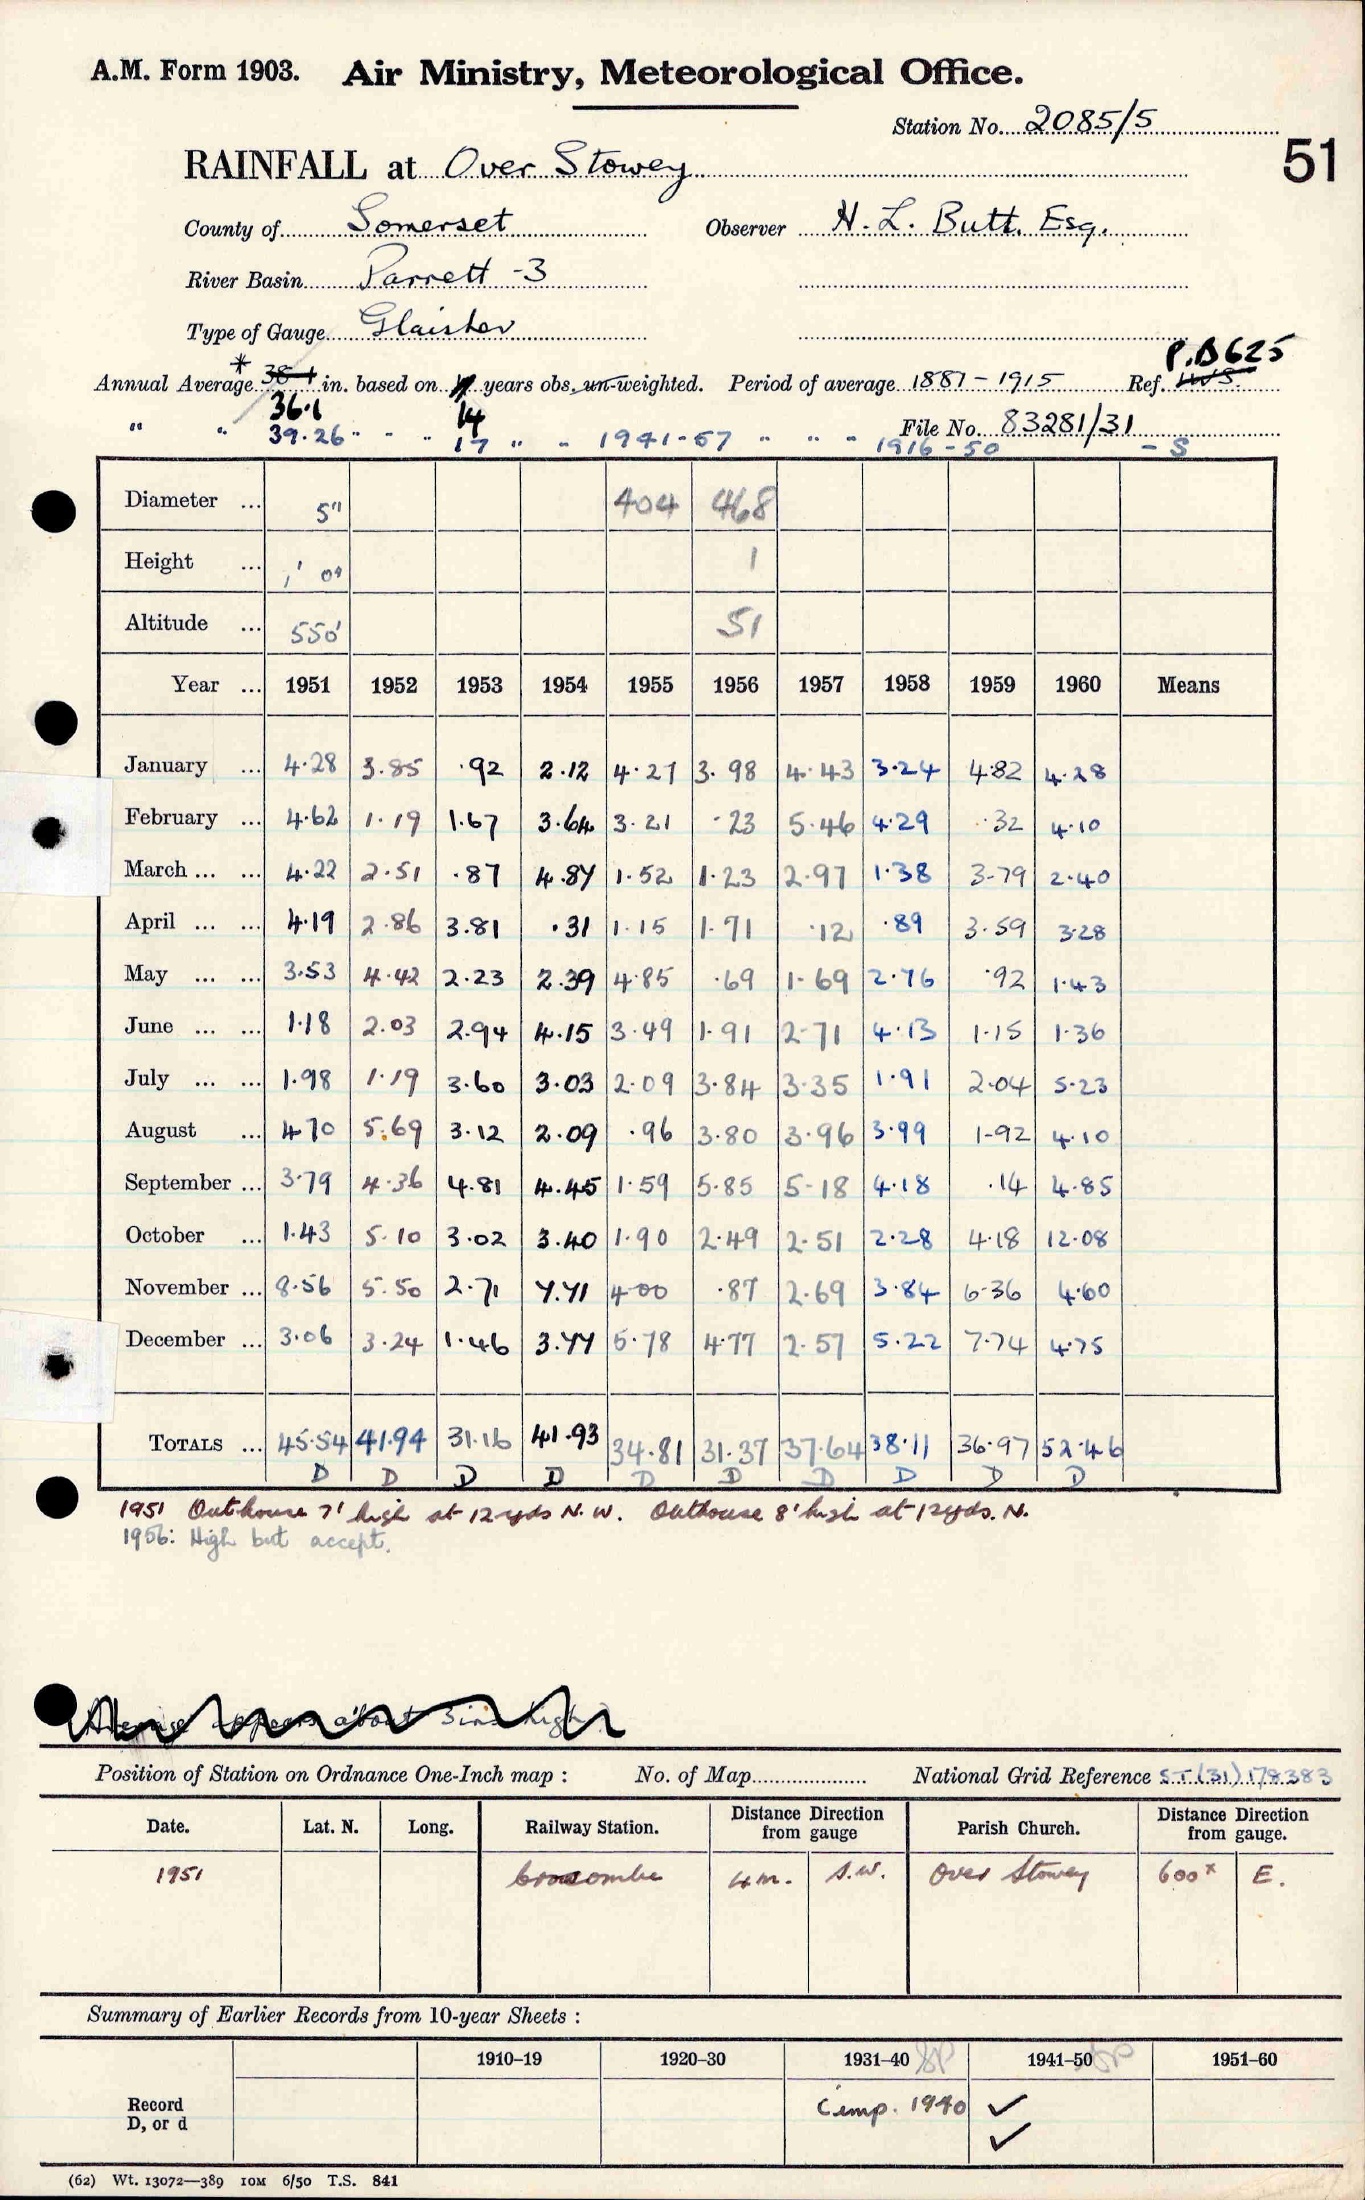 A.M. Form 1903. Air Ministry, Meteorological Office.
Station No. 2085/5
51
RAINFALL at Over Stowey
County of Somerset Observer H. L. Butt. Esq.
River Basin Parrett -3
Type of Gauge Glaisher
P.D625
Annual Average * 38.1 in. based on years obs, un-weighted. Period of average 1881-1915 Ref.
36.1 14 File No. 83281/31
" " 39.26 " " " 17 " " 1941-57 " " " 1916-50 - S
Diameter ... 5" 404 468
Height ... 1' 0" 1
Altitude ... 550' 51
Year ... 1951 1952 1953 1954 1955 1956 1957 1958 1959 1960 Means
January ... 4.28 3.85 .92 2.12 4.27 3.98 4.43 3.24 4.82 4.28
February ... 4.62 1.19 1.67 3.64 3.21 .23 5.46 4.29 .32 4.10
March ... ... 4.22 2.51 .87 4.87 1.52 1.23 2.97 1.38 3.79 2.40
April ... ... 4.19 2.86 3.81 .31 1.15 1.71 .12 .89 3.59 3.28
May ... ... 3.53 4.42 2.23 2.39 4.85 .69 1.69 2.76 .92 1.43
June ... ... 1.18 2.03 2.94 4.15 3.49 1.91 2.71 4.13 1.15 1.36
July ... ... 1.98 1.19 3.60 3.03 2.09 3.84 3.35 1.91 2.04 5.23
August ... 4.70 5.69 3.12 2.09 .96 3.80 3.96 3.99 1.92 4.10
September ... 3.79 4.36 4.81 4.45 1.59 5.85 5.18 4.18 .14 4.85
October ... 1.43 5.10 3.02 3.40 1.90 2.49 2.51 2.28 4.18 12.08
November ... 8.56 5.50 2.71 7.71 4.00 .87 2.69 3.84 6.36 4.60
December ... 3.06 3.24 1.46 3.77 5.78 4.77 2.57 5.22 7.74 4.75
TOTALS ... 45.54 41.94 31.16 41.93 34.81 31.37 37.64 38.11 36.97 52.46
D D D D D D D D D D
1951 Outhouse 7' high at 12 yds N.W. Outhouse 8' high at 12 yds. N.
1956: High but accept.
Average appears about 3ins high
Position of Station on Ordnance One-Inch map : No. of Map National Grid Reference ST(31)178383
Date. Lat. N. Long. Railway Station. Distance Direction from gauge Parish Church. Distance Direction from gauge.
1951 Crowcombe 4m. S.W. Over Stowey 600x E.
Summary of Earlier Records from 10-year Sheets :
1910–19 1920–30 1931–40 1941–50 1951–60
Record D, or d 1940 ✓
✓
(62) Wt. 13072—389 10M 6/50 T.S. 841